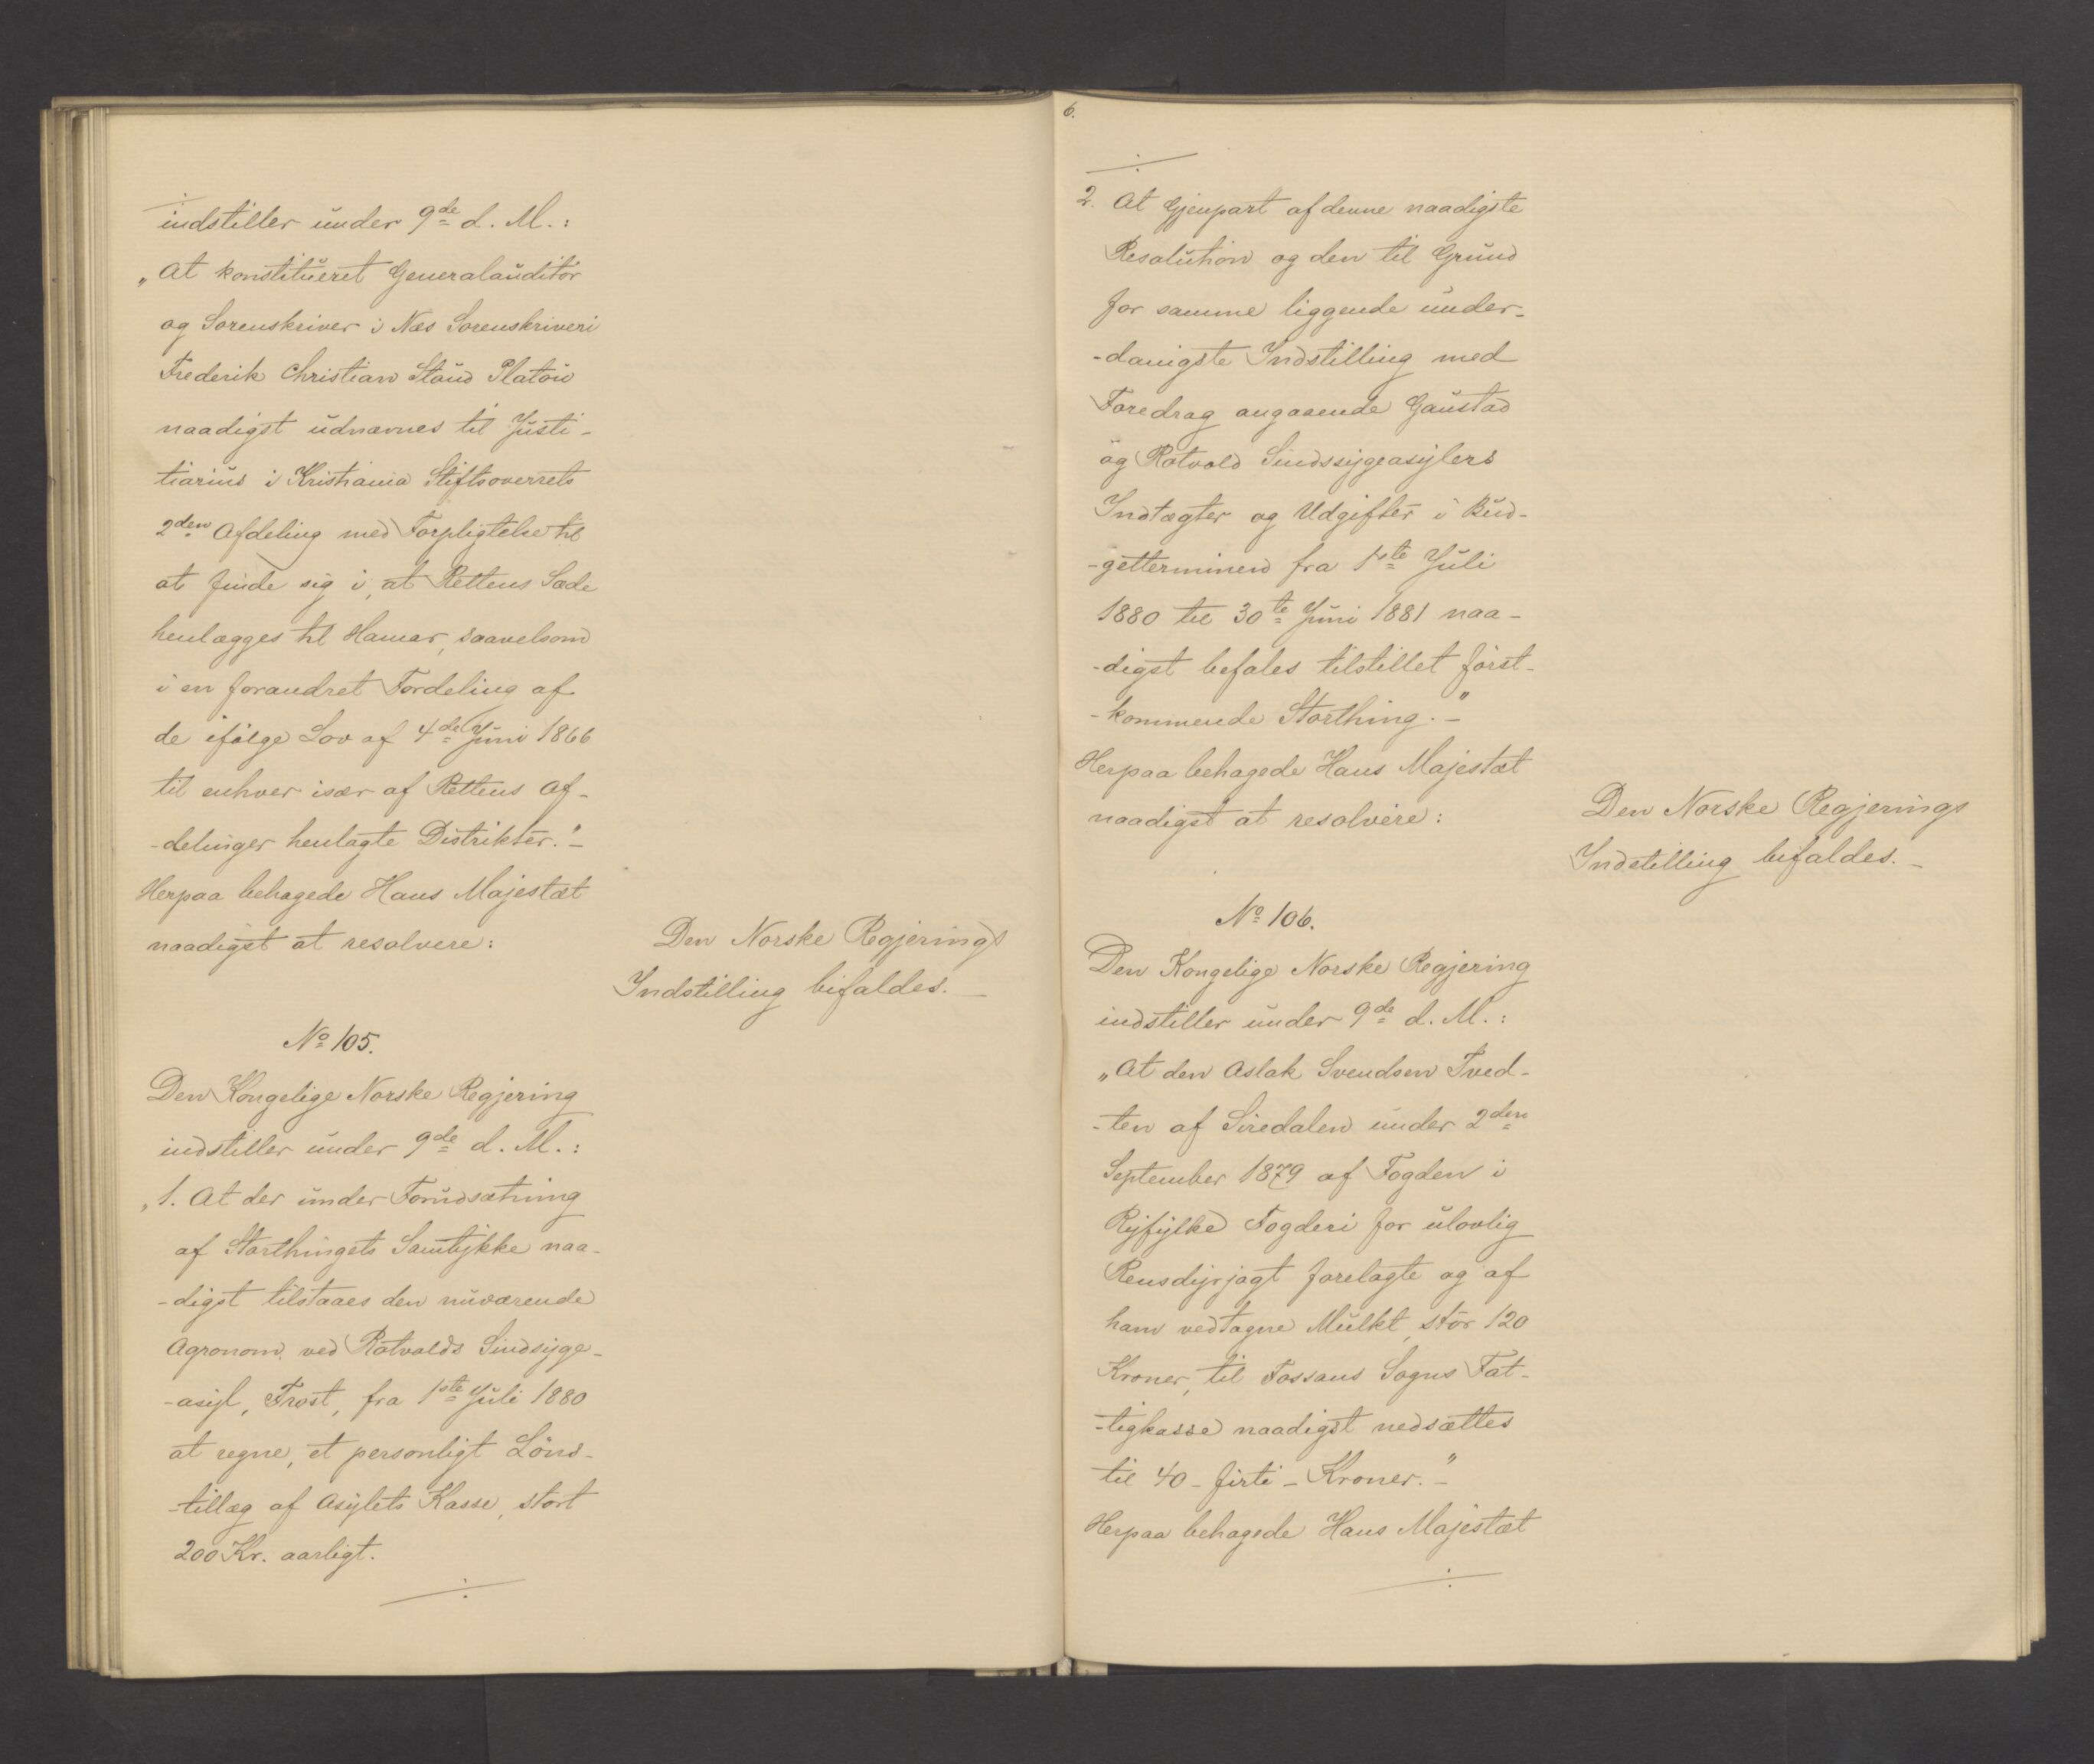 indstiller under 9de d. M.:
„At konstitueret Generalauditör
og Sorenskriver i Næs Sorenskriveri
Frederik Christian Stoud Platou
naadigst udnævnes til Justi-
tiarius i Kristiania Stiftsoverrets
2den Afdeling med Forpligtelse til
at finde sig i, at Rettens Sæde
henlægges til Hamar, saavelsom
i en forandret Fordeling af
de ifölge Lov af 4de Juni 1866
til enhver især af Rettens Af-
-delinger henlagte Distrikter."-
Herpaa behagede Hans Majestæt
naadigst at resolvere:
Den Norske Regjerings
Indstilling bifaldes.-
No 105.
Den Kongelige Norske Regjering
indstiller under 9de d. M.:
„1. At der under Forudsætning
af Storthingets Samtykke naa-
-digst tilstaaes den nuværende
Agronom ved Rotvolds Sindsyge-
-asyl, Frost, fra 1ste Juli 1880
at regne, et personligt Löns-
-tillæg af Asylets Kasse, stort
200 Kr. aarligt.
6.
2. At Gjenpart af denne naadigste
Resolution og den til Grund
for samme liggende under-
-danigste Indstilling med
Foredrag angaaende Gaustad
og Rotvold Sindssygeasylers
Indtægter og Udgifter i Bud-
-getterminen fra 1ste Juli
1880 til 30te Juni 1881 naa-
-digst befales tilstillet först-
-kommende Storthing."-
Herpaa behagede Hans Majestæt
naadigst at resolvere:
Den Norske Regjerings
Indstilling bifaldes.-
No 106.
Den Kongelige Norske Regjering
indstiller under 9de d. M.:
„At den Aslak Svendsen Tved-
-ten af Siredalen under 2den
September 1879 af Fogden i
Ryfylke Fogderi for ulovlig
Rensdyrjagt forelagte og af
ham vedtagne Mulkt, stor 120
Kroner, til Fossans Sogns Fat-
-tigkasse naadigst nedsættes
til 40 - firti - Kroner."-
Herpaa behagede Hans Majestæt